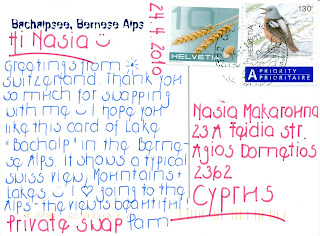 Bachalpsee, Bernese Alps
Hi Nasia
24.4.2010
10
HELVETIA
130
A PRIORITY
PRIORITAIRE
Greetings from
Switzerland. Thank you
so much for swapping
with me I hope you
like this card of Lake
"Bachalp" in the Berne-
se Alps it shows a typical
swiss view, Mountains+
Lakes I ♡ going to the
Alps - the view is beautiful
Private swap Pam
Nasia Makarouna
23A Faidia str.
Agios Dometios
2362
CYPRUS